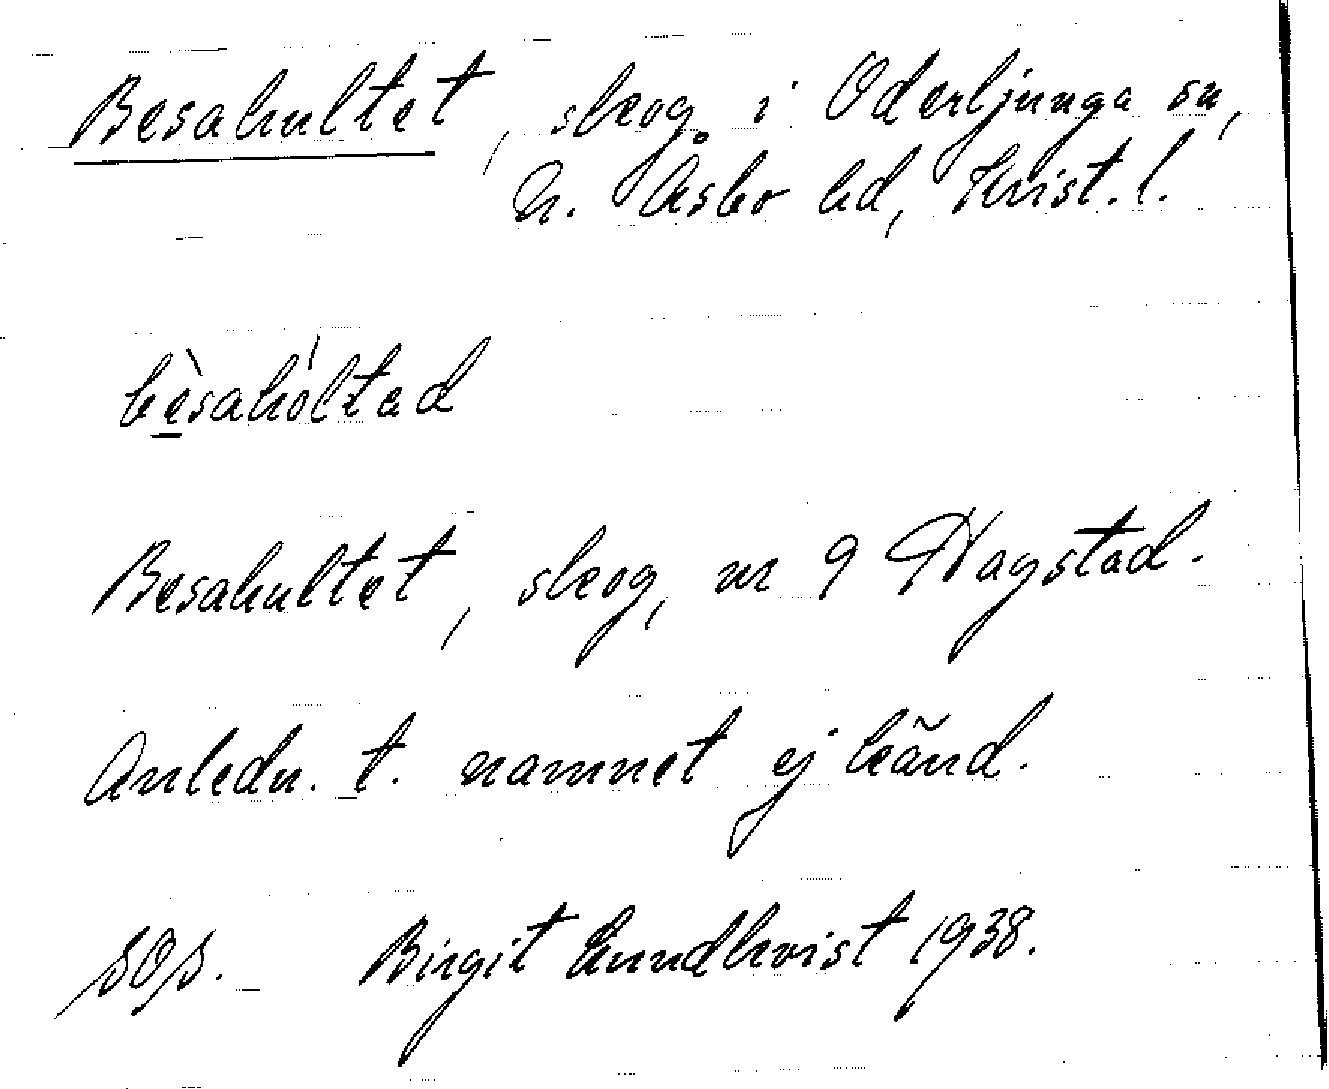 Besahultet, skog i Oderljunga sn,
N. Åsbo hd, Krist. l.
bèsahóltad
Besahultet, skog, nr 9 Hagstad.
Anledn. t. namnet ej känd.
SOS. Birgit Lundkvist 1938.